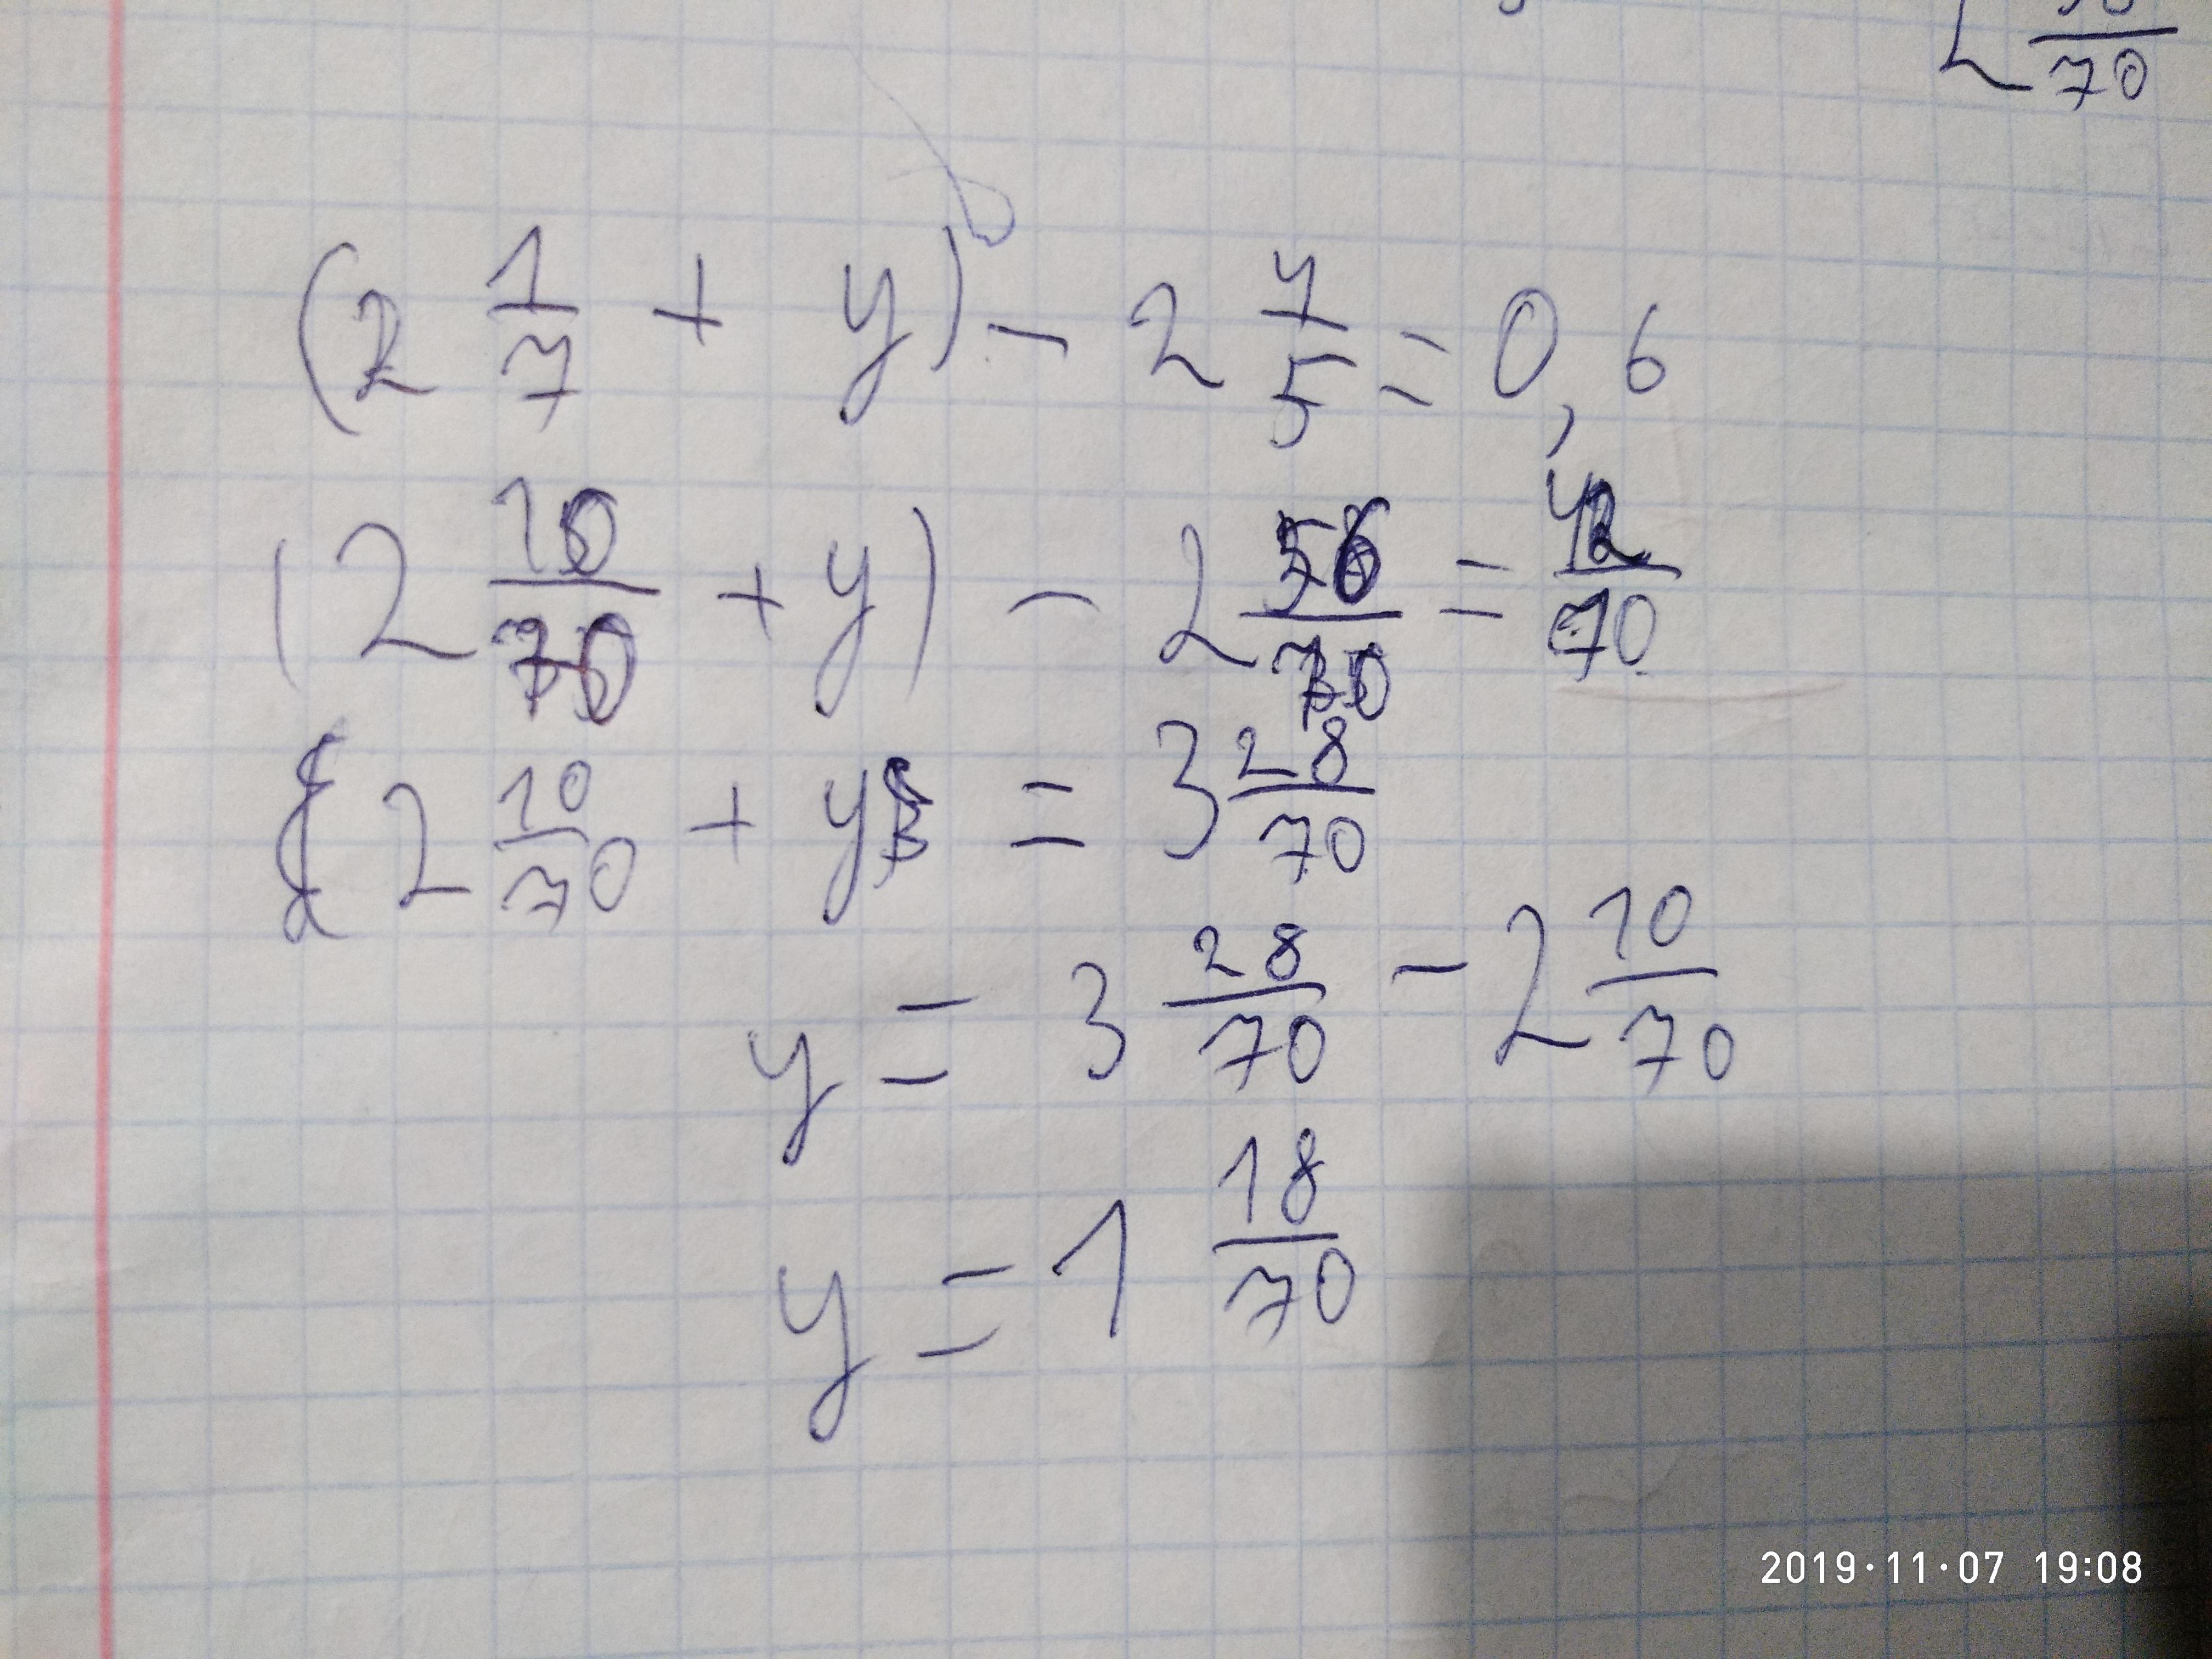 2 70
(2 1/7 + y) - 2 4/5 = 0,6
(2 10/70 + y) - 2 56/70 = 42/70
2 10/70 + y = 3 28/70
y = 3 28/70 - 2 10/70
y = 1 18/70
2019·11·07 19:08